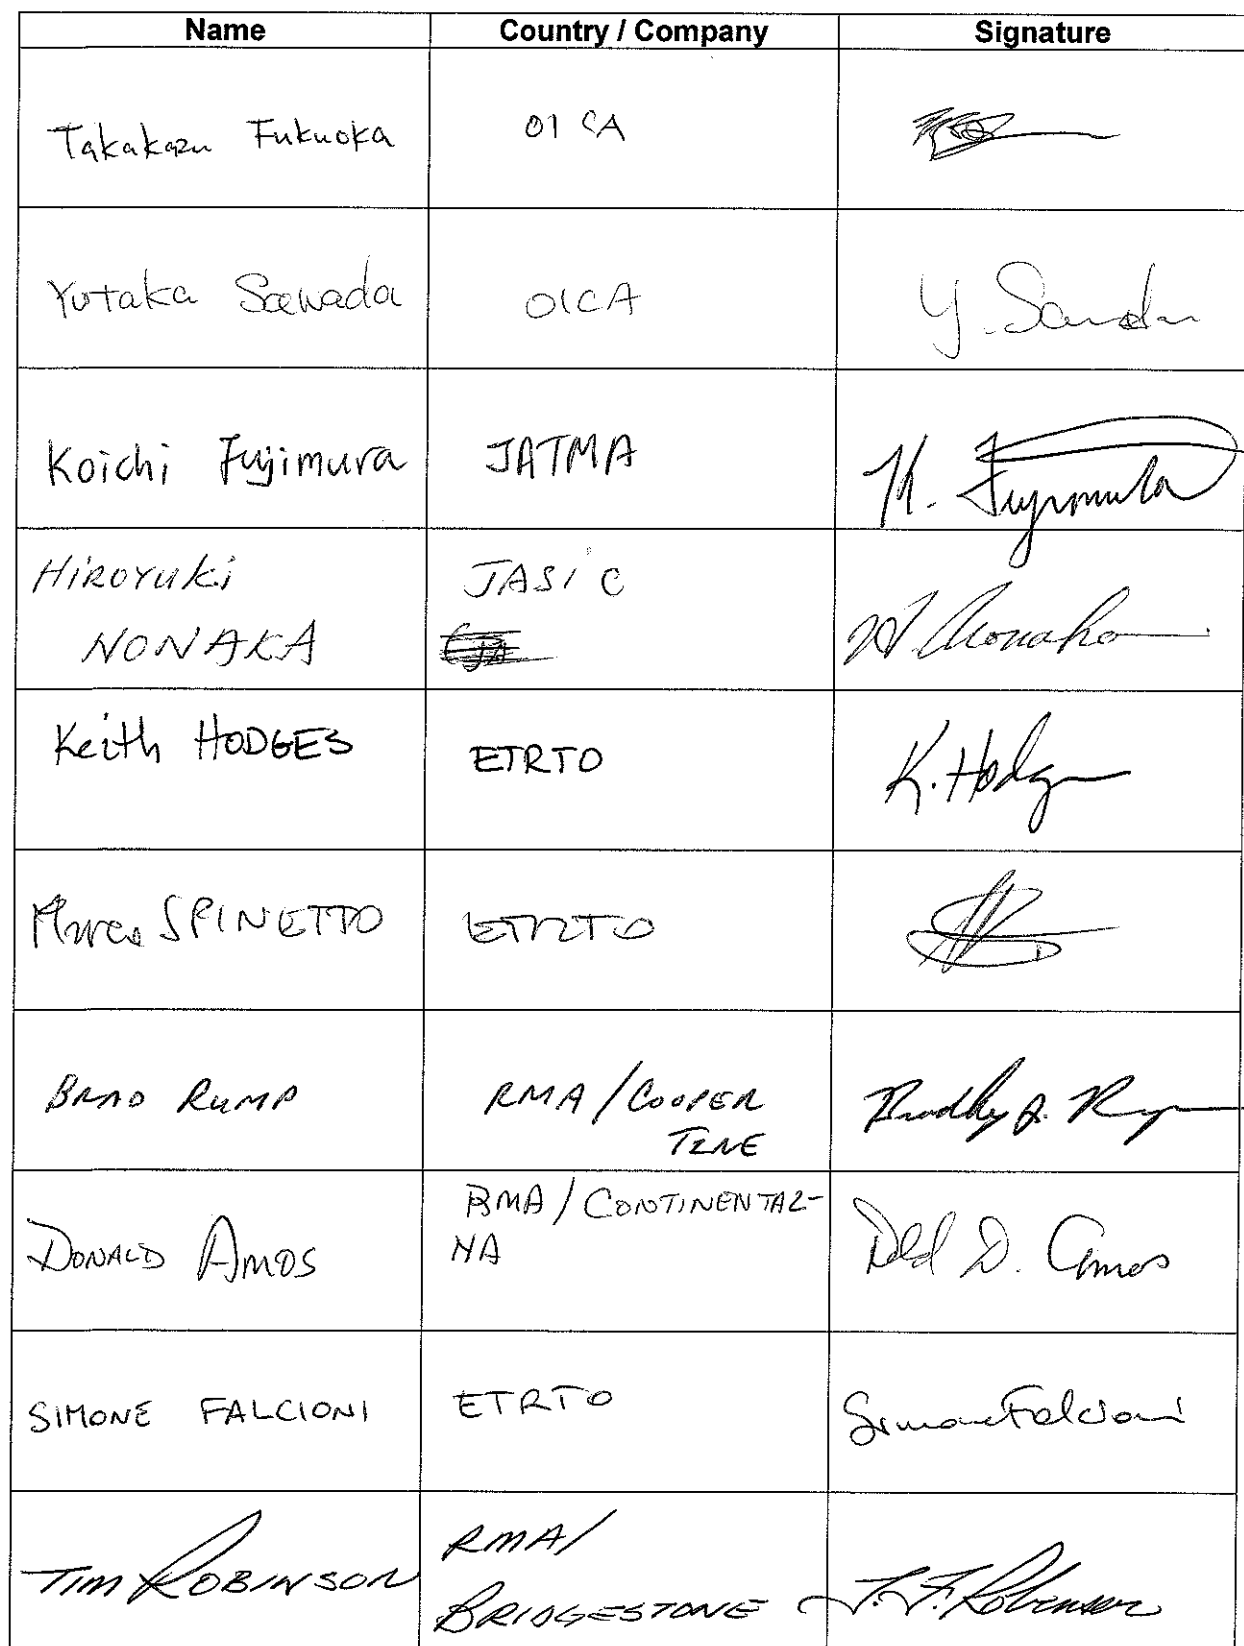 Name Country / Company Signature
Takakazu Fukuoka OICA
Yutaka Sawada OICA Y. Sawada
Koichi Fujimura JATMA K. Fujimura
HIROYUKI JASIC
NONAKA H. Nonaka
Keith HODGES ETRTO K. Hodges
Marco SPINETTO ETRTO
BRAD RUMP RMA / COOPER Bradley J. Rump
TIRE
DONALD AMOS RMA / CONTINENTAL- D. Amos
NA
SIMONE FALCIONI ETRTO Simone Falcioni
TIM ROBINSON RMA/ T. F. Robinson
BRIDGESTONE